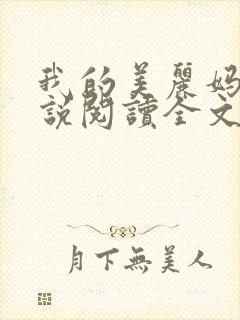 我的美麗媽
說閱讀全文
月下無美人